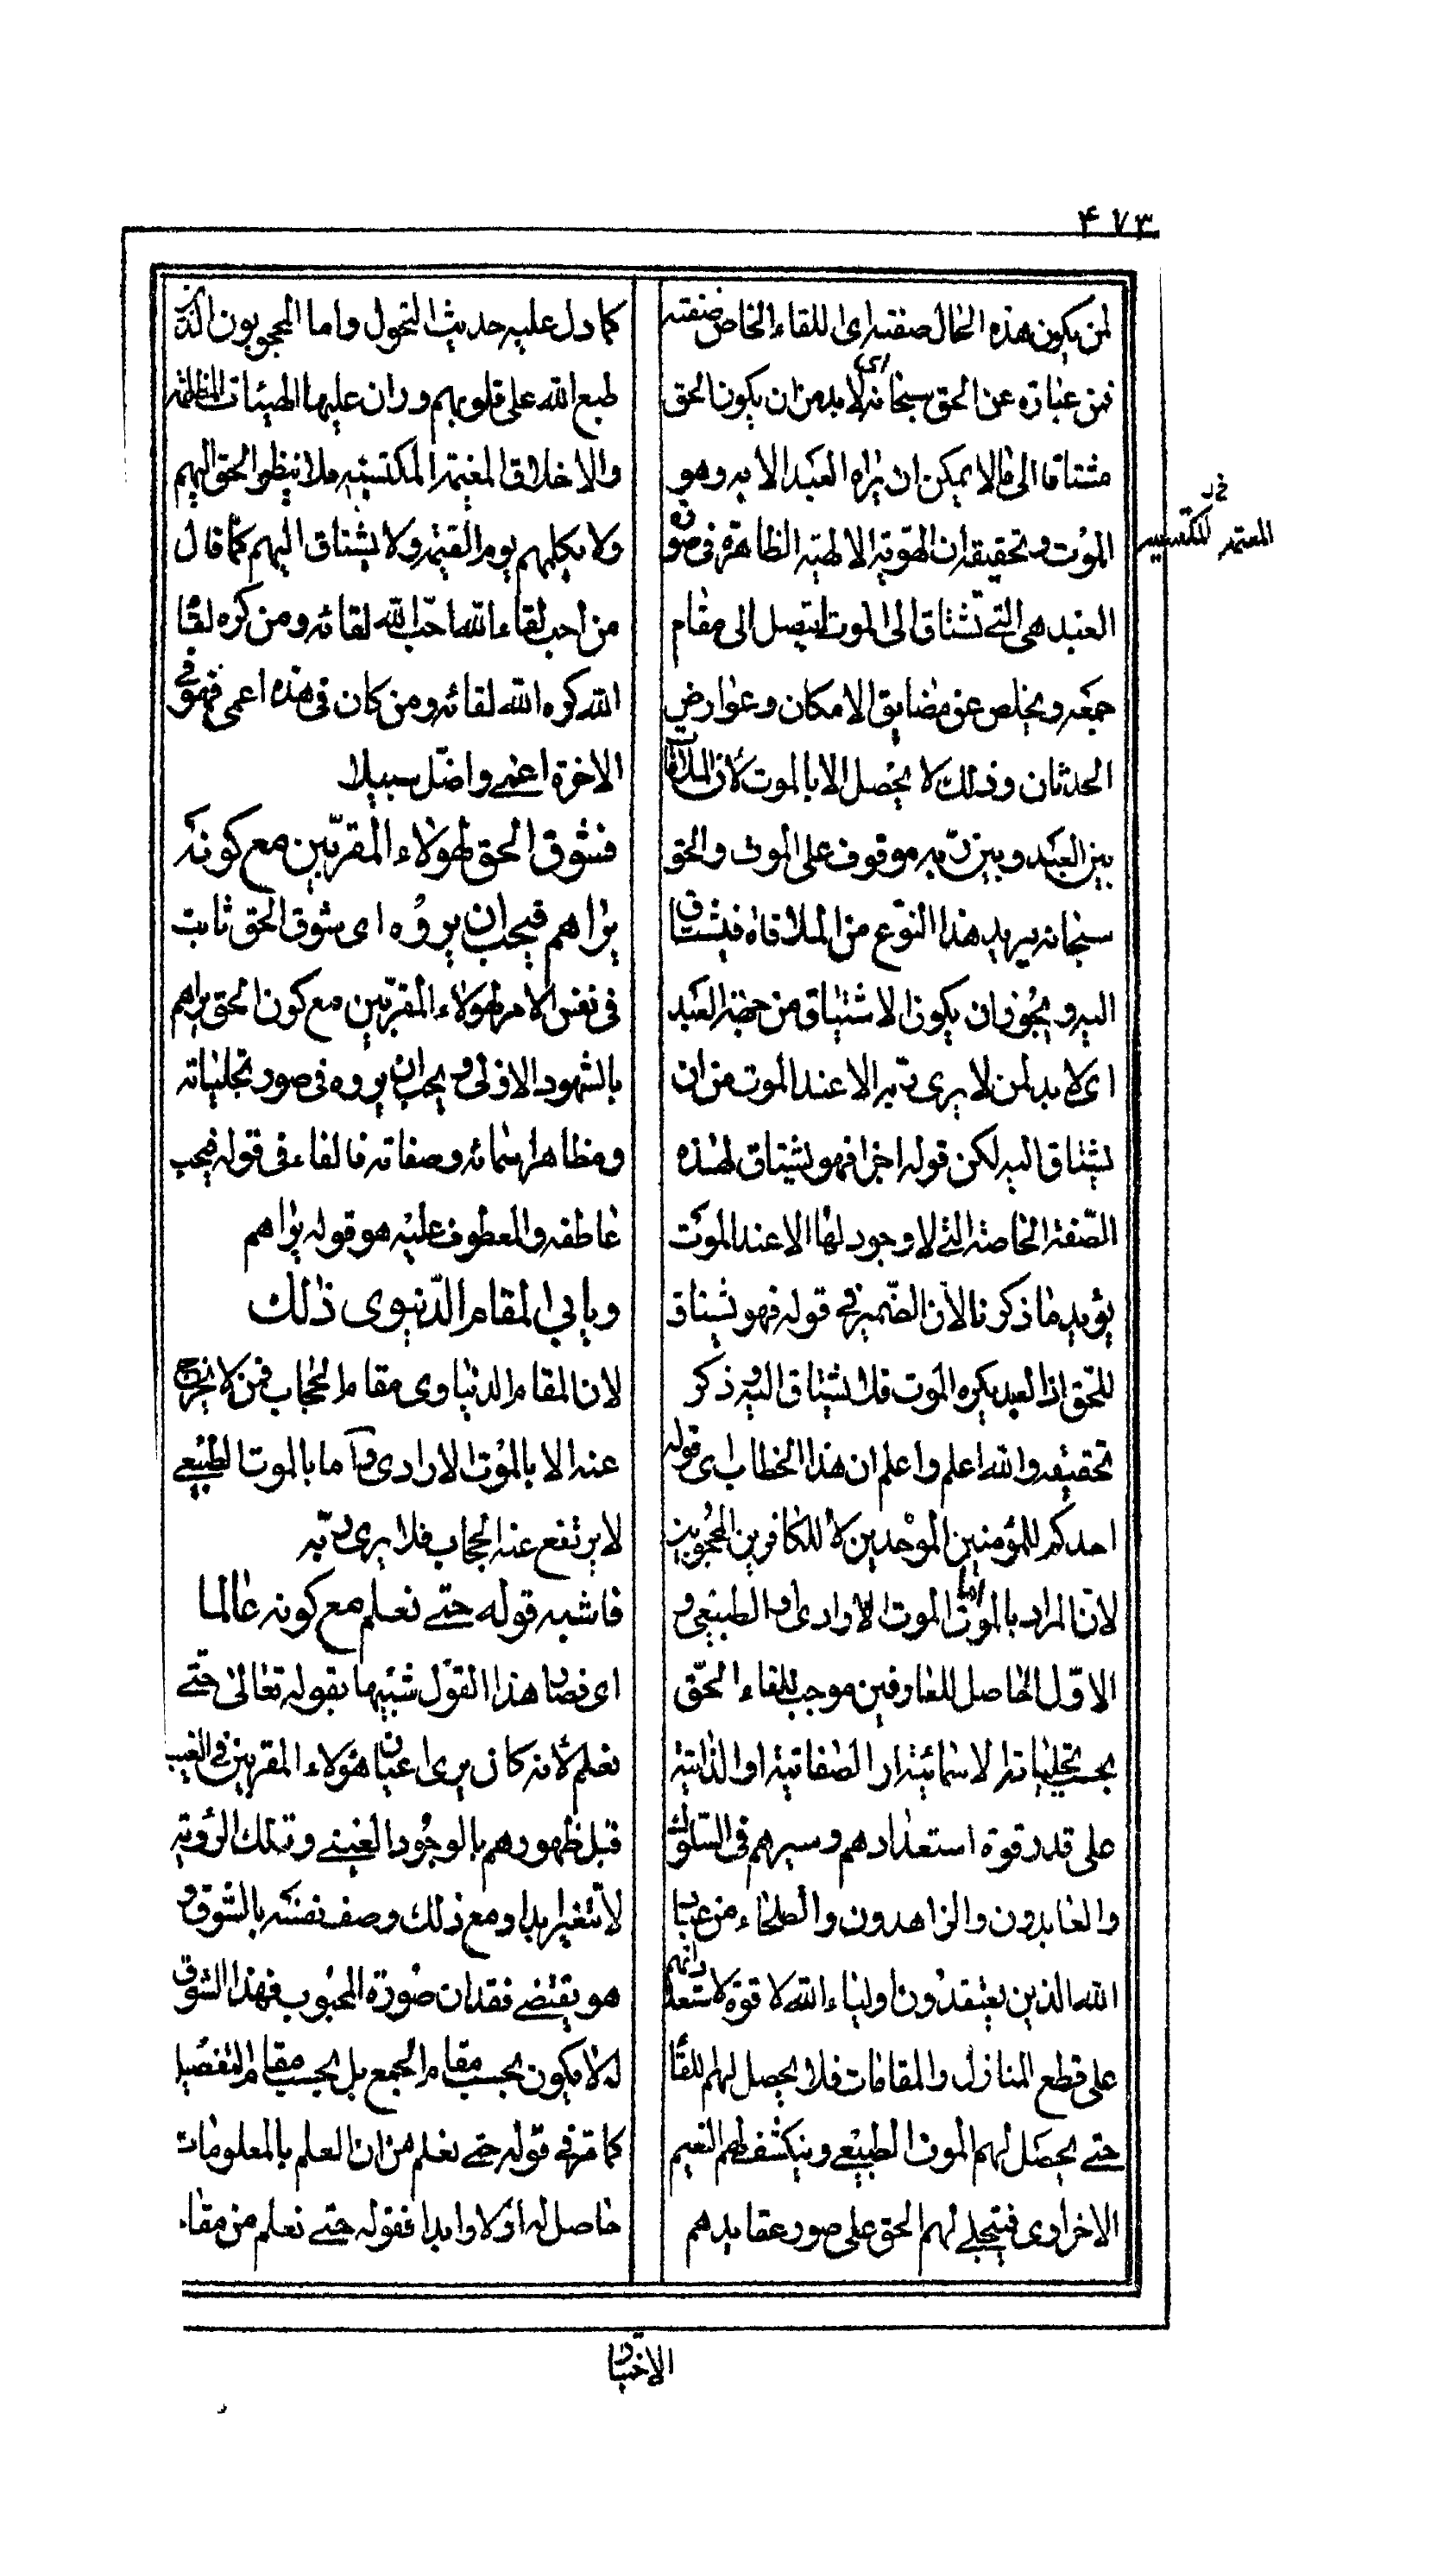 ۴۷۳
لمن يكون هذه الحال صفته اى للقاء الخاص صفته
فمن عبارة عن الحق سبحانه اى لا بد من ان يكون الحق
مشتاقا الى ما لا يمكن ان يراه العبد الا به وهو
الموت وتحقيقه ان الهوية الالهية الظاهرة فى صورة
العبد هى التى تشتاق الى الموت ليصل الى مقام
جمعه ويخلص عن مضايق الامكان وعوارض
الحدثان وذلك لا يحصل الا بالموت لان الملاقاة
بين العبد وبين ربه موقوف على الموت والحق
سبحانه يريد هذا النوع من الملاقاة فيشتاق
اليه ويجوز ان يكون الاشتياق من حضرة العبد
اى لا بد لمن لا يرى ربه الا عند الموت من ان
يشتاق اليه لكن قوله اخرا فهو يشتاق لهذه
الصفة الخاصة التى لا وجود لها الا عند الموت
يؤيد ما ذكرنا لان الضمير فى قوله فهو يشتاق
للحق اذ العبد يكره الموت فلا يشتاق اليه وذكر
تحقيقه والله اعلم واعلم ان هذا الخطاب اى قوله
احدكم للمؤمنين الموحدين لا للكافرين المحجوبين
لان المراد بالموت اما الموت الارادى او الطبيعى و
الاول الحاصل للعارفين موجب للقاء الحق
بحسب تجلياته الاسمائية او الصفاتية او الذاتية
على قدر قوة استعدادهم وسيرهم فى السلوك
والعابدون والزاهدون والصلحاء من عباد
الله الذين يعتقدون اولياء الله لا قوة لاستعداداتهم
على قطع المنازل والمقامات فلا يحصل لهم اللقاء
حتى يحصل لهم الموت الطبيعى وينكشف لهم النعيم
الاخراوى فيتجلى لهم الحق على صور عقايدهم
كما دل عليه حديث التحول واما المحجوبون الذين
طبع الله على قلوبهم وران عليها الهيئات المظلمة
والاخلاق المكتسبة فلا ينظر الحق اليهم
ولا يكلمهم يوم القيمة ولا يشتاق اليهم كما قال
من احب لقاء الله احب الله لقائه ومن كره لقاء
الله كره الله لقائه ومن كان فى هذه اعمى فهو فى
الاخرة اعمى واضل سبيلا
فشوق الحق لهؤلاء المقربين مع كونه
يراهم فيحب ان يروه اى شوق الحق ثابت
فى نفس الامر لهؤلاء المقربين مع كون الحق يراهم
بالشهود الازلى ويحب ان يروه فى صور تجلياته
ومظاهر اسمائه وصفاته فالفاء فى قوله فيحب
عاطفه والمعطوف عليه هو قوله يراهم
ويابى المقام الدنيوى ذلك
لان المقام الدنياوى مقام الحجاب فمن لا يخرج
عنه الا بالموت الارادى واما بالموت الطبيعى
لا يرتفع عنه الحجاب فلا يرى ربه
فاشبه قوله حتى نعلم مع كونه عالما
اى فصار هذا القول شبيها بقوله تعالى حتى
نعلم لانه كان يرى اعيان هؤلاء المقربين فى الغيب
قبل ظهورهم بالوجود العينى وتلك الرؤية
لا تتغير ابدا ومع ذلك وصف نفسه بالشوق و
هو يقتضى فقدان صورة المحبوب فهذا الشوق
له لا يكون بحسب مقام الجمع بل بحسب مقام التفصيل
كما مر فى قوله حتى نعلم من ان العلم بالمعلومات
حاصل له ازلا وابدا فقوله حتى نعلم من مقام
الاختبار